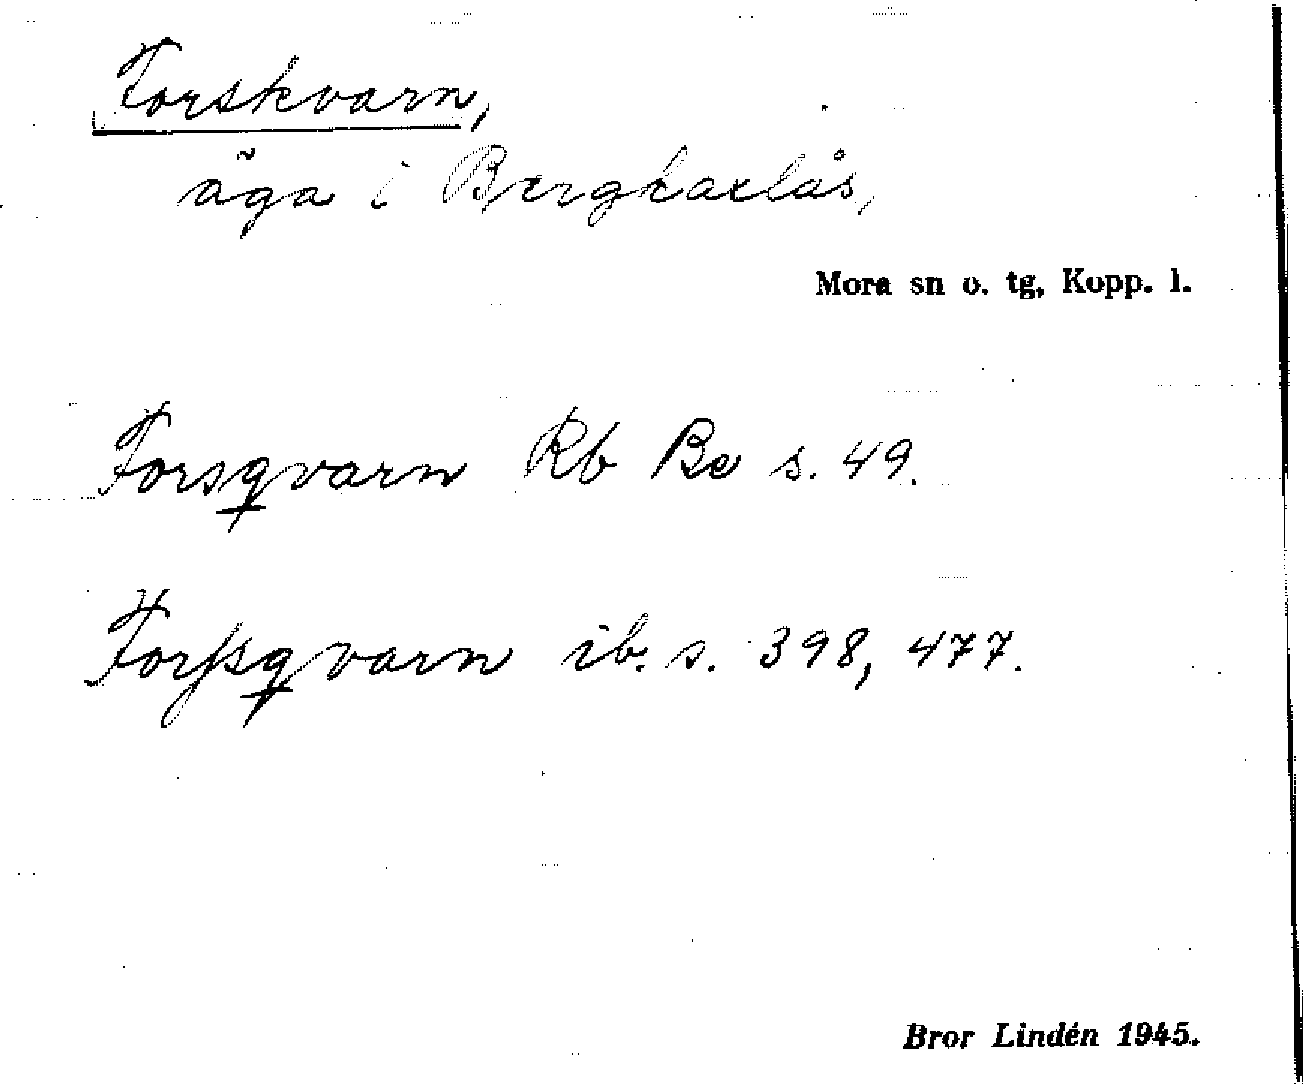 Forskvarn,
äga i Bergkarlås,
Mora sn o. tg, Kopp. l.
Forsqvarn Rb Be s. 49.
Forssqvarn ib. s. 398, 477.
Bror Lindén 1945.